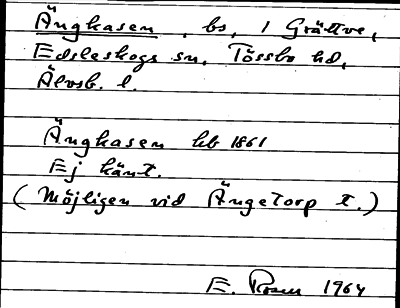 Ängkasen, bs, 1 Grättve,
Edsleskogs sn, Tössbo hd,
Älvsb. l.
Ängkasen hb 1861
Ej känt.
(Möjligen vid Ängetorp t.)
E. Rosen 1964